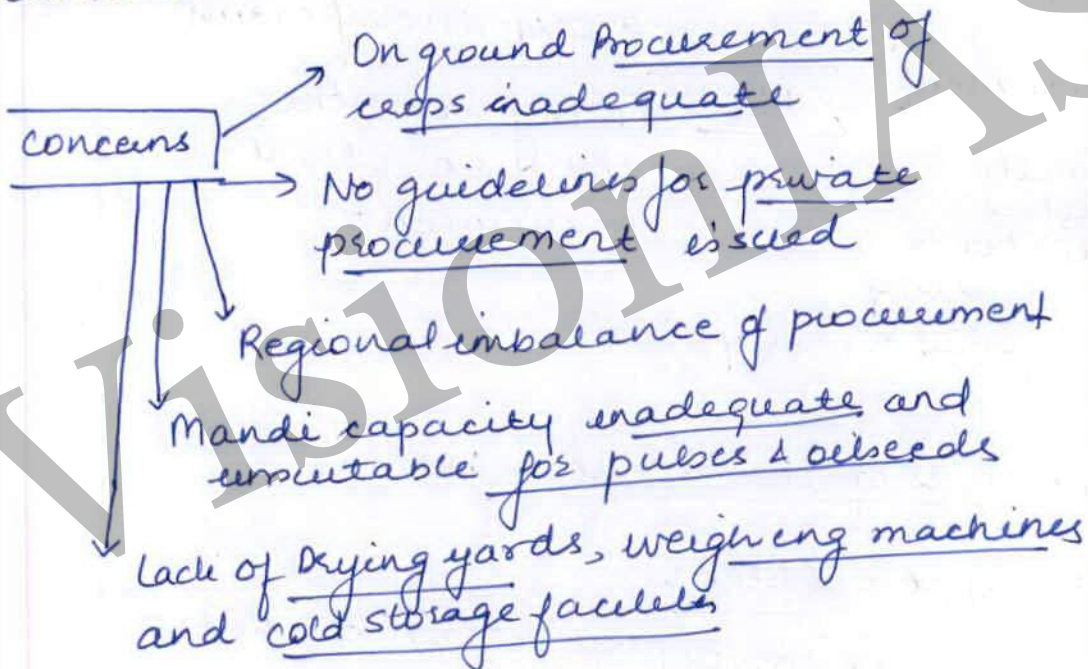 concerns
On ground Procurement of
crops inadequate
No guidelines for private
procurement issued
Regional imbalance of procurement
Mandi capacity inadequate and
unsuitable for pulses & oilseeds
Lack of Drying yards, weighing machines
and cold storage facilities
VisionIAS